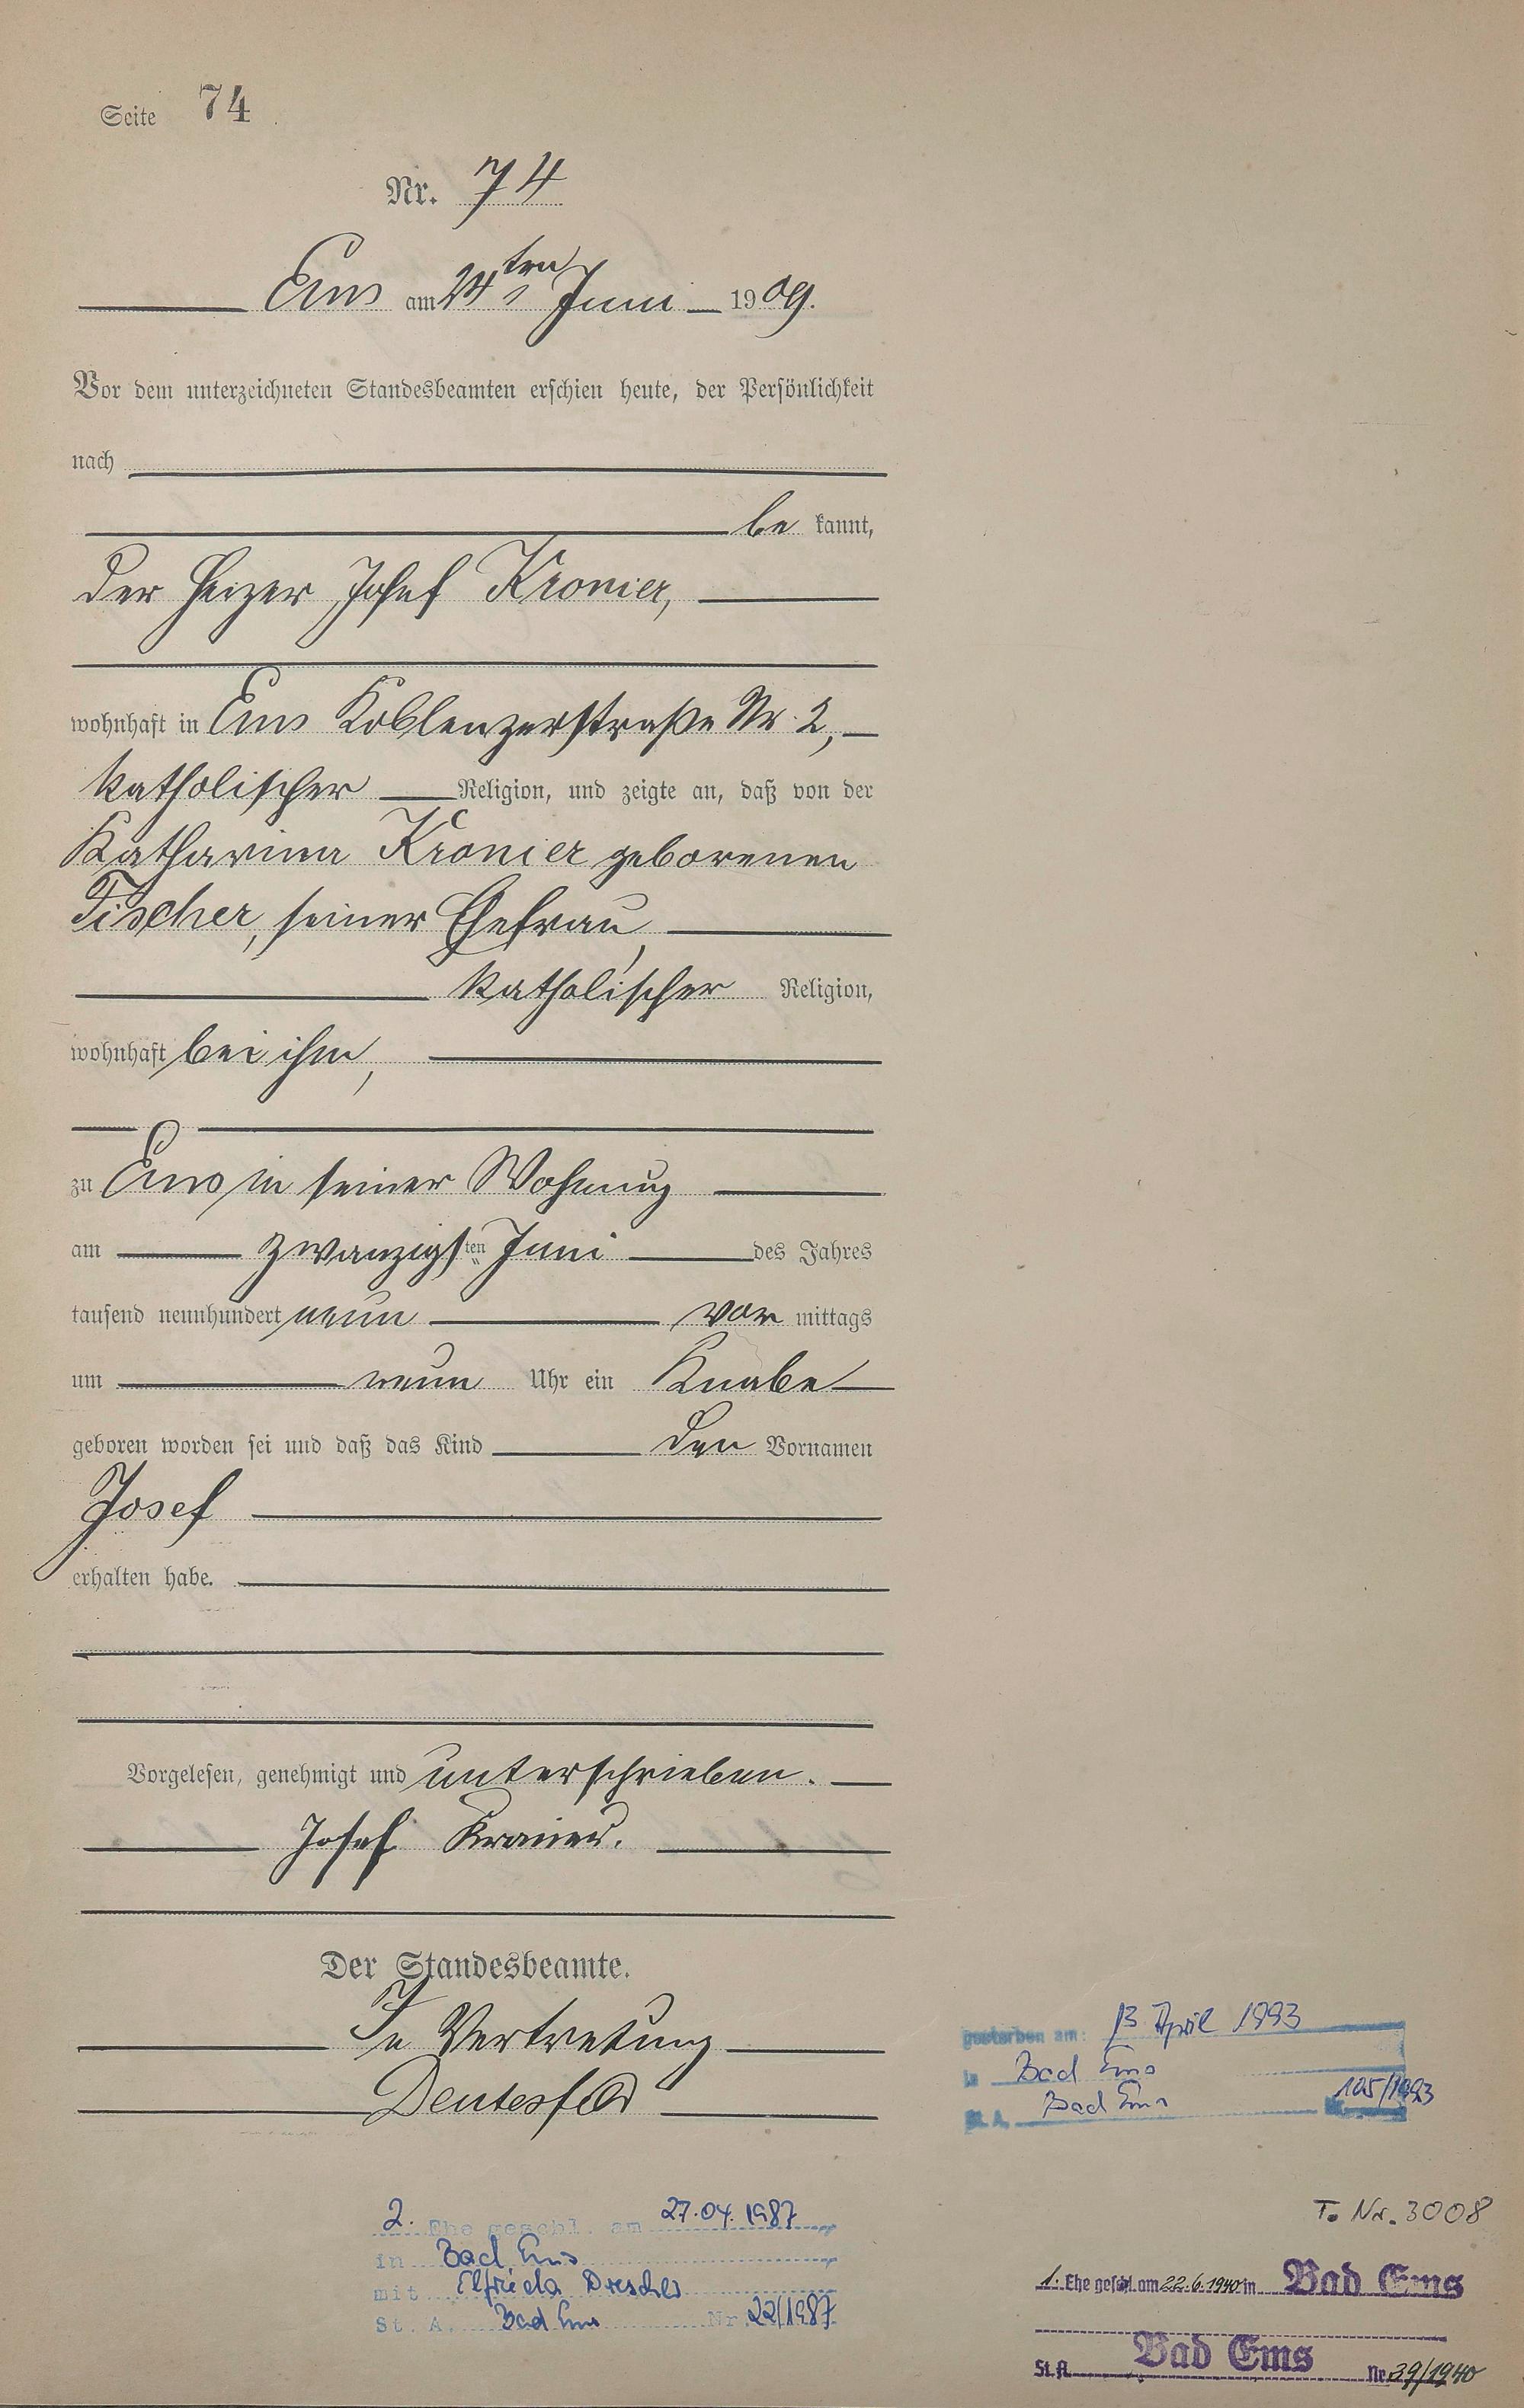 Seite 74
Nr. 74
Ems am 24ten Juni 1909.
Vor dem unterzeichneten Standesbeamten erschien heute, der Persönlichkeit
nach
be kannt,
der Heizer Josef Kronier,
wohnhaft in Ems Koblenzerstraße Nr. 2,
katholischer Religion, und zeigte an, daß von der
Katharina Kronier geborenen
Fischer, seiner Ehefrau,
katholischer Religion,
wohnhaft bei ihm,
zu Ems in seiner Wohnung
am zwanzigsten Juni des Jahres
tausend neunhundert neun vor mittags
um neun Uhr ein Knabe
geboren worden sei und daß das Kind den Vornamen
Josef
erhalten habe.
Vorgelesen, genehmigt und unterschrieben.
Josef Kronier.
Der Standesbeamte.
In Vertretung
gestorben am: 13 April 1993
in Bad Ems
St. A. Bad Ems 105/1993
2. Ehe geschl. am 27.04.1987
in Bad Ems
mit Elfrieda
St. A. Bad Ems Nr. 22/1987
T. Nr. 3008
1. Ehe geschl. am 22.6.1940 in Bad Ems
St. A. Bad Ems Nr. 39/1940